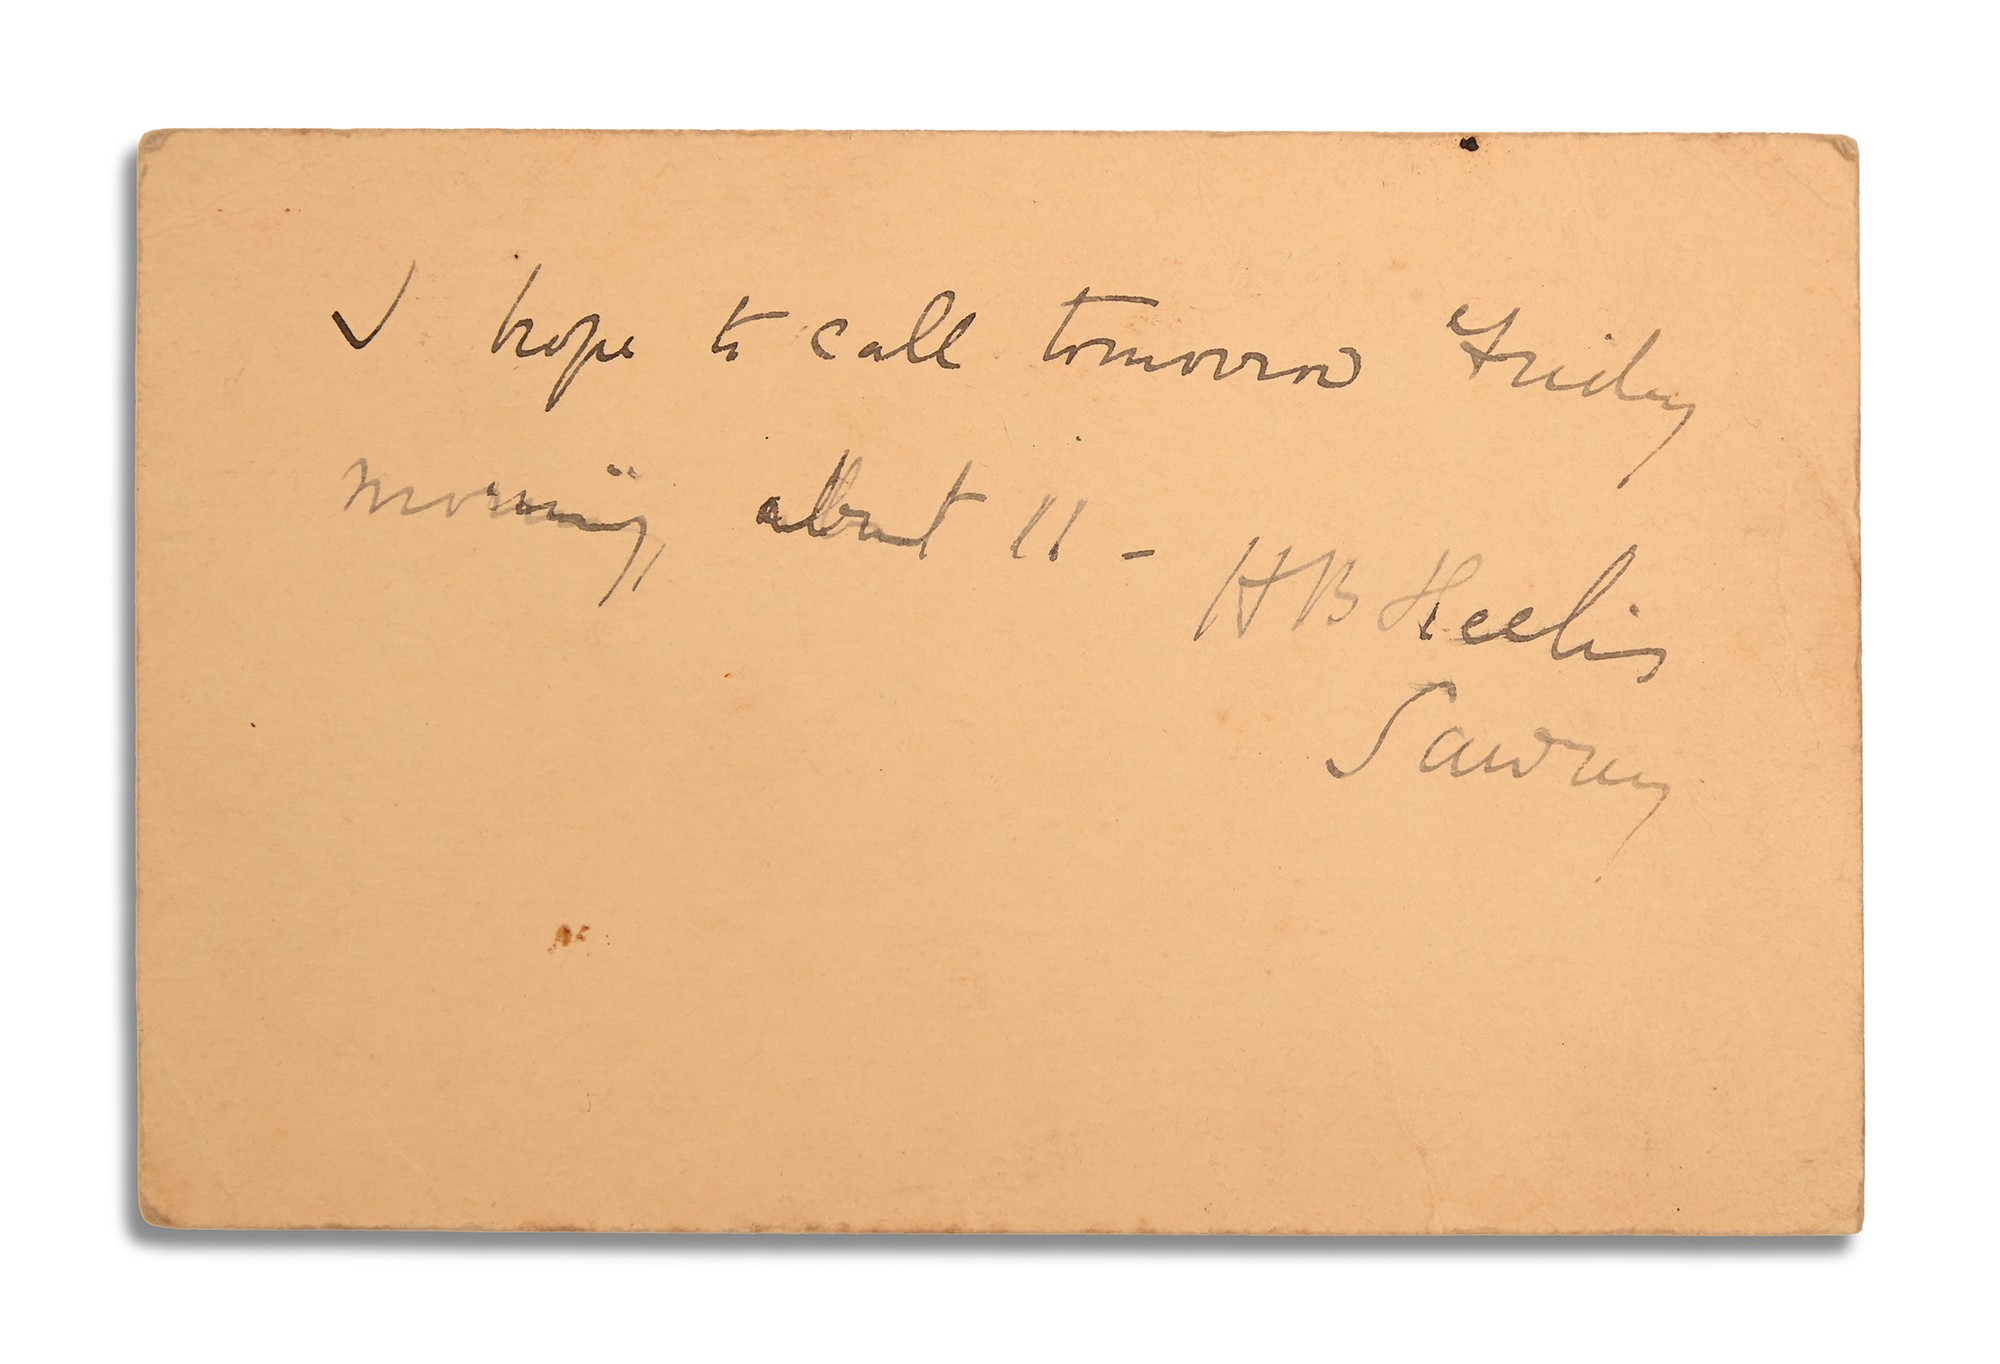 I hope to call tomorrow Friday
morning, about 11 -
H B Heelis
Sawrey